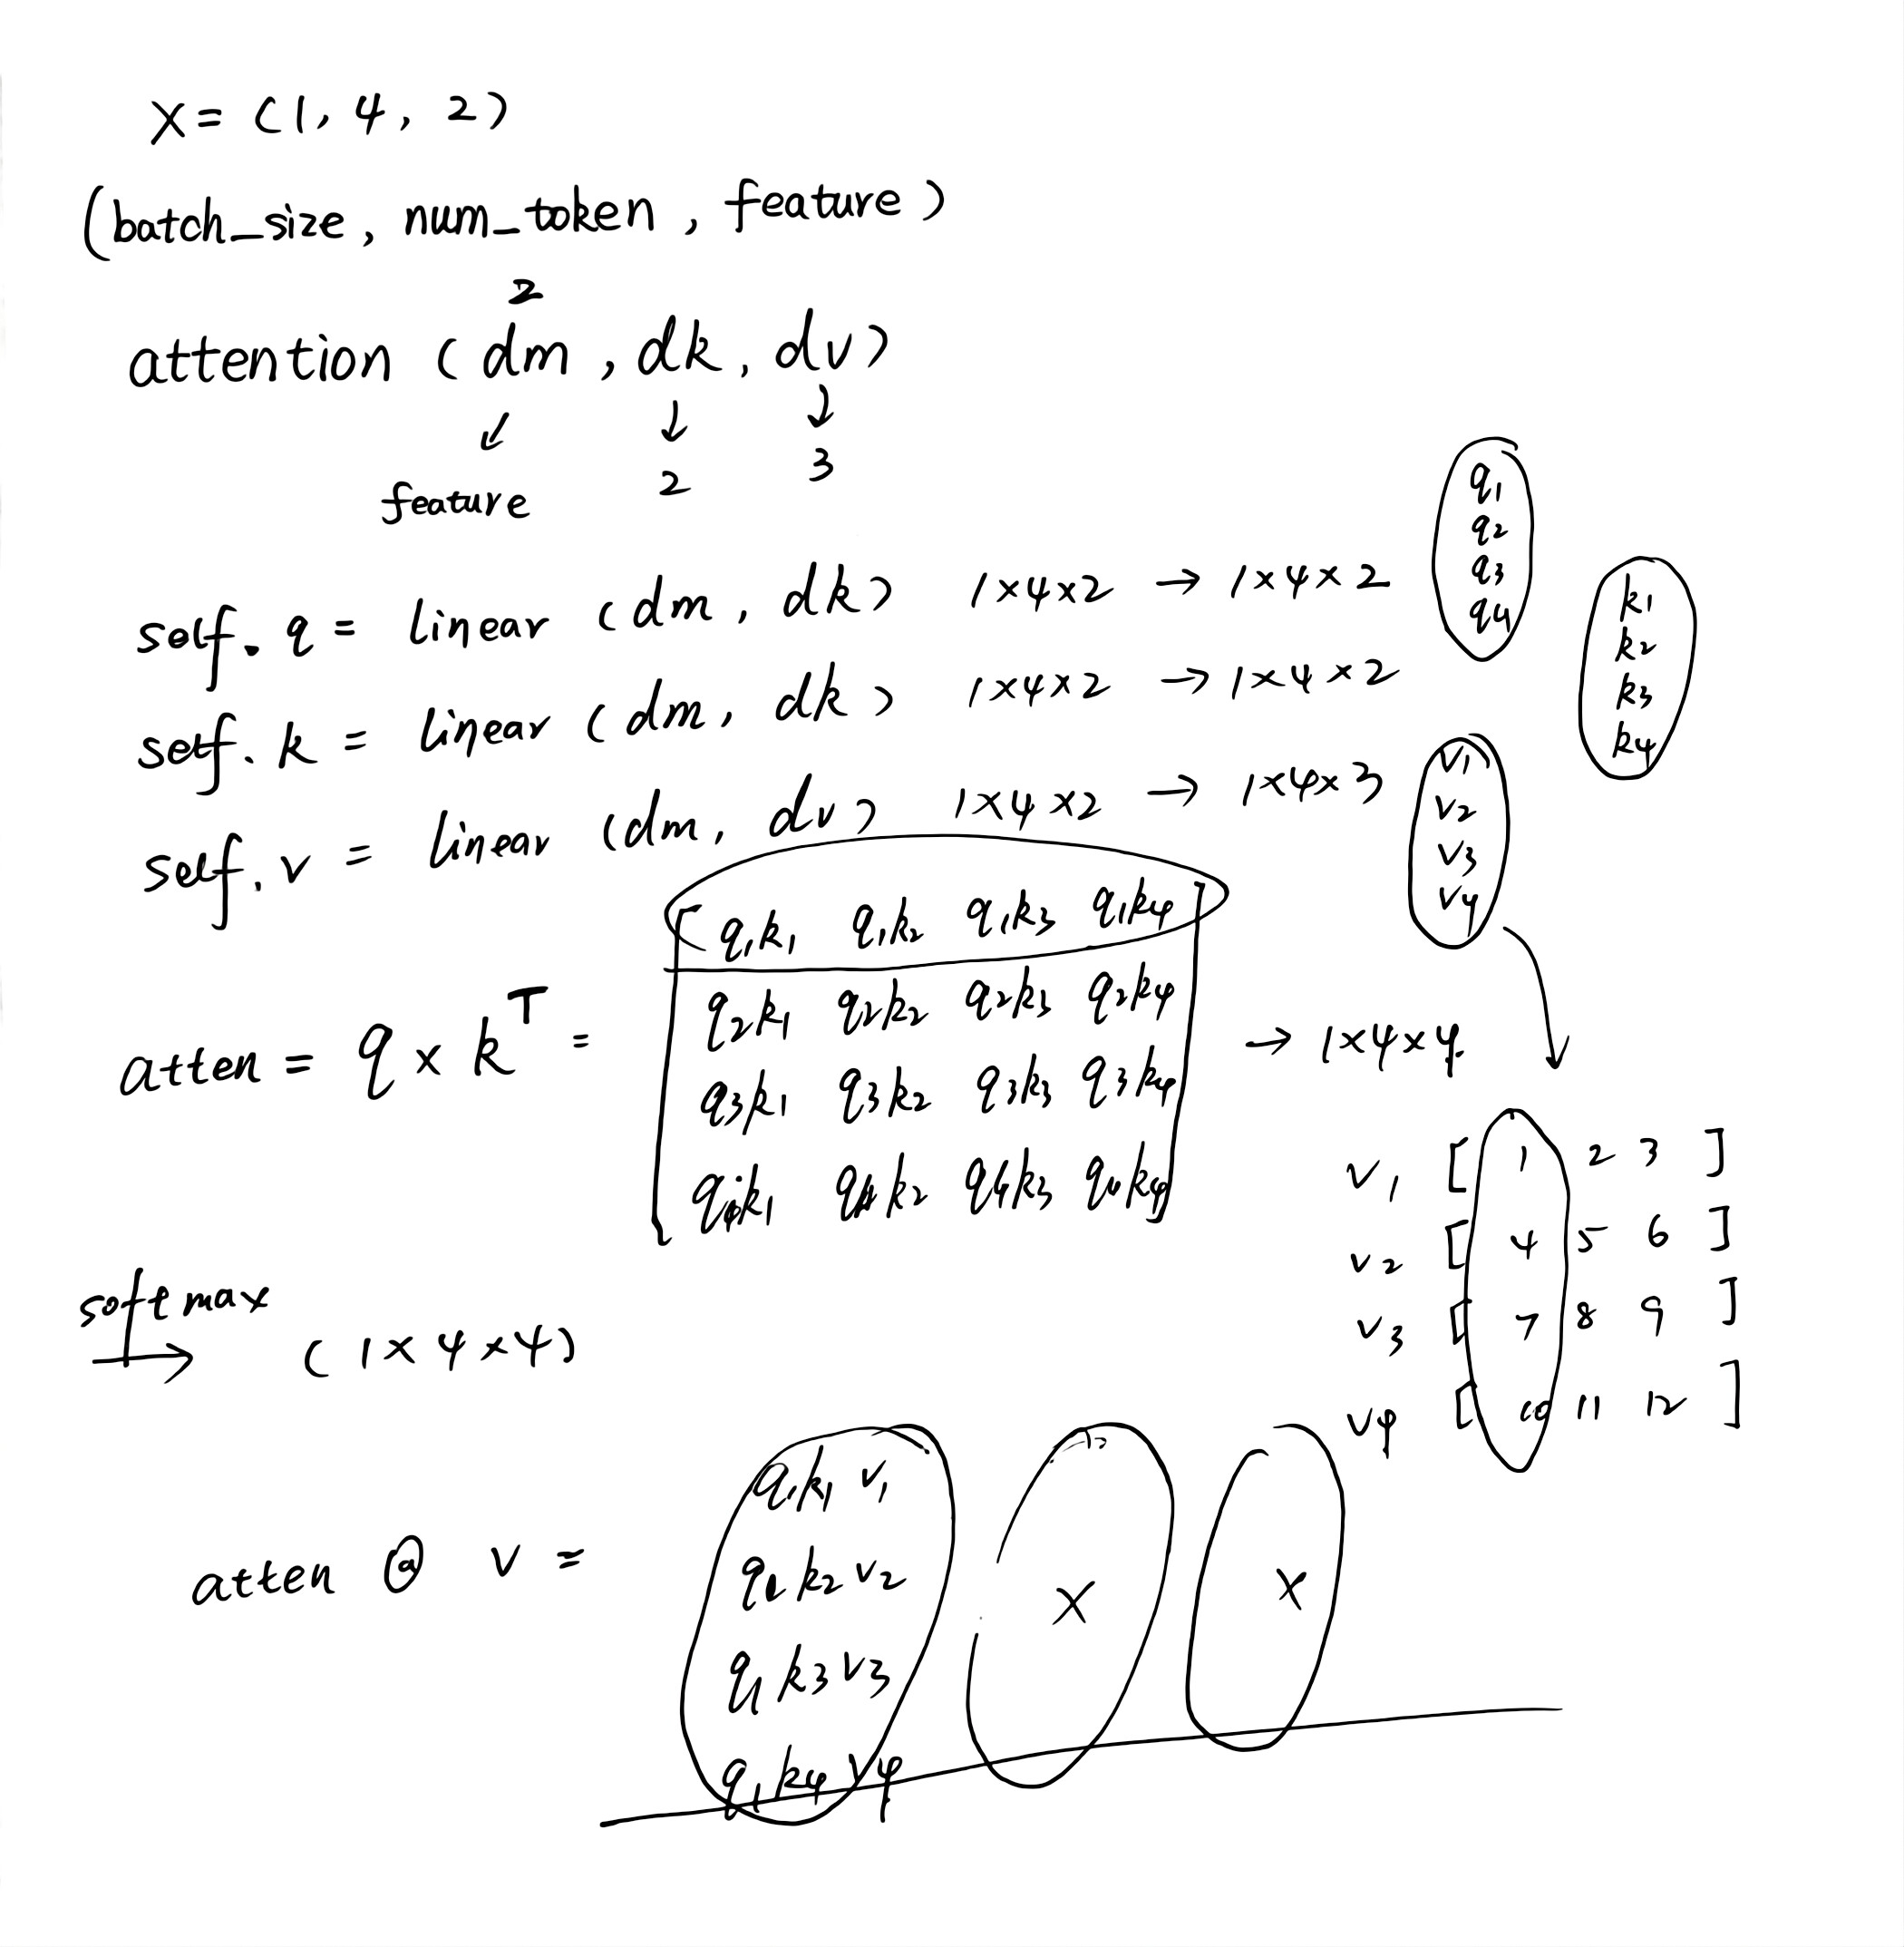 x = (1, 4, 2)
(batch_size, num_token, feature)
2
attention (dm, dk, dv)
↙ ↓ ↓
feature 2 3
self. q = linear (dm, dk) 1×4×2 → 1×4×2
q1
q2
q3
q4
self. k = linear (dm, dk) 1×4×2 → 1×4×2
k1
k2
k3
k4
self. v = linear (dm, dv) 1×4×2 → 1×4×3
v1
v2
v3
v4
atten = q × k^T =
[ q1k1 q1k2 q1k3 q1k4 ]
q2k1 q2k2 q2k3 q2k4
q3k1 q3k2 q3k3 q3k4
q4k1 q4k2 q4k3 q4k4
→ 1×4×4
v1 [ 1 2 3 ]
v2 [ 4 5 6 ]
v3 [ 7 8 9 ]
v4 [ 10 11 12 ]
softmax
→ (1×4×4)
atten @ v =
q1k1 v1
q1k2 v2
q1k3 v3
q1k4 v4
× ×